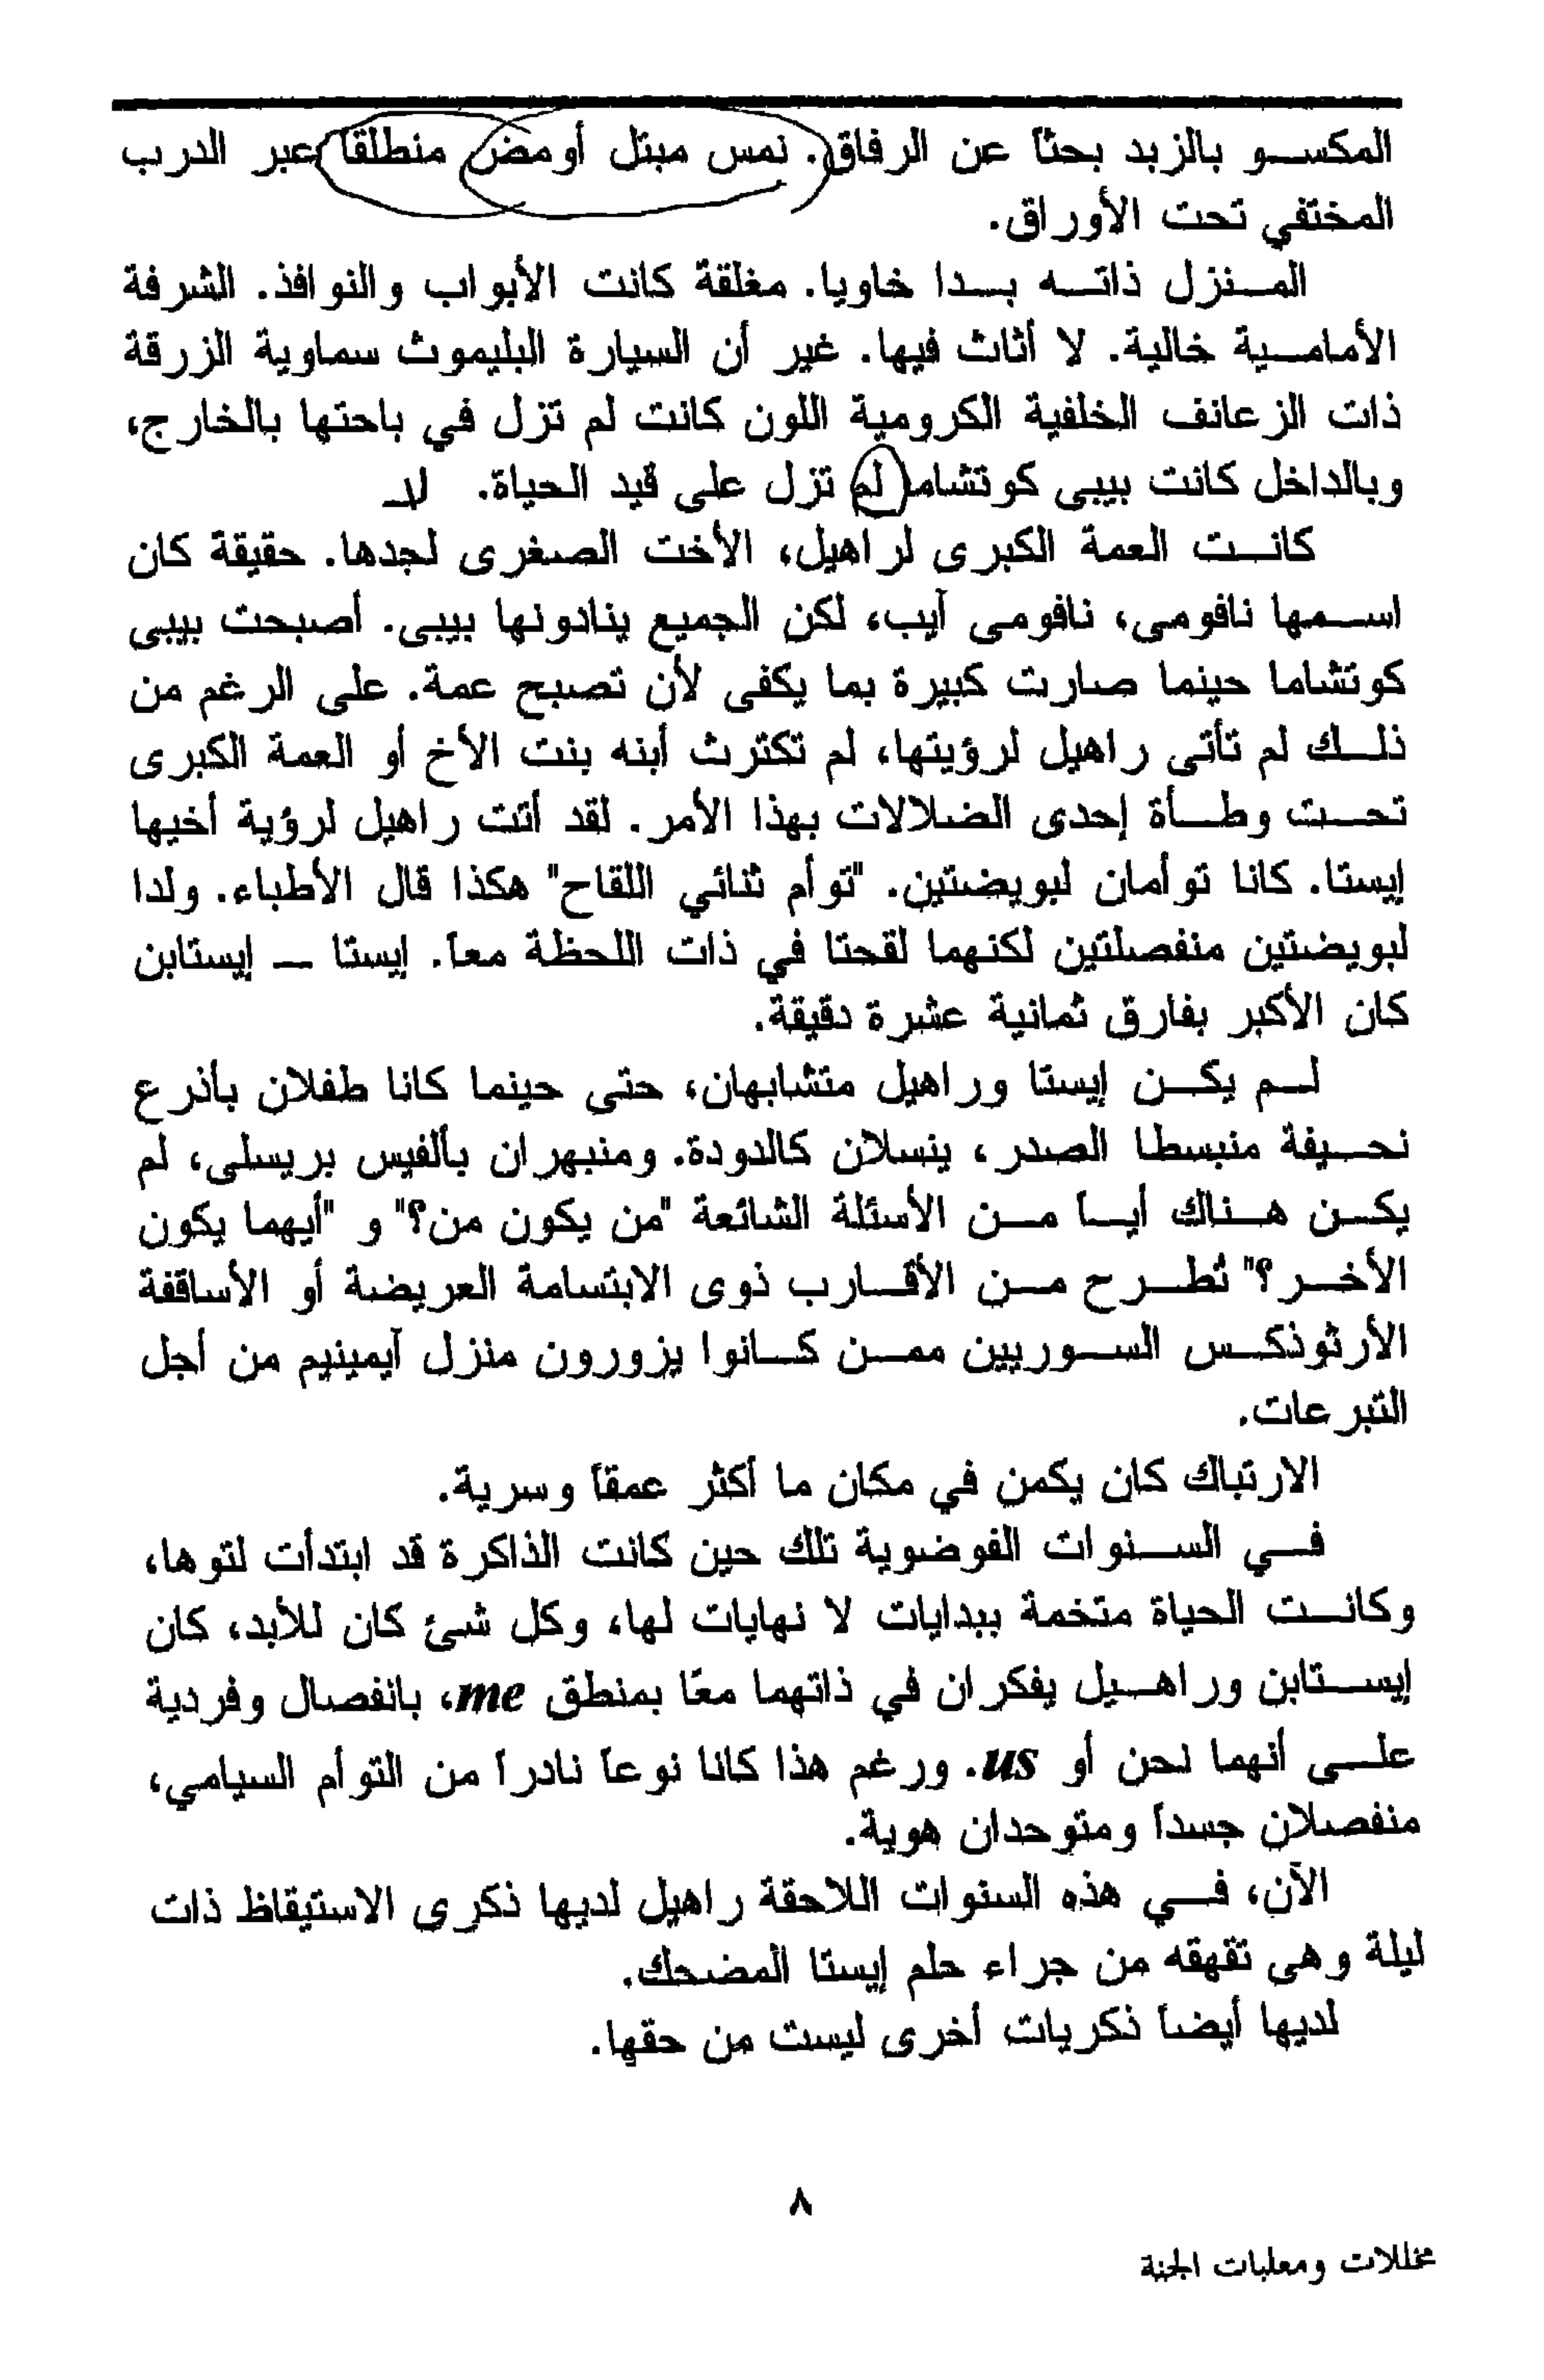 المكسو بالزبد بحثاً عن الرفاق. نمس مبتل أومض منطلقاً عبر الدرب
المختفي تحت الأوراق.
المنزل ذاته بدا خاويا. مغلقة كانت الأبواب والنوافذ. الشرفة
الأمامية خالية. لا أثاث فيها. غير أن السيارة البليموث سماوية الزرقة
ذات الزعانف الخلفية الكرومية اللون كانت لم تزل في باحتها بالخارج،
وبالداخل كانت بيبى كوتشاما لم تزل على قيد الحياة. لا
كانت العمة الكبرى لراهيل، الأخت الصغرى لجدها. حقيقة كان
اسمها نافومى، نافومى آيب، لكن الجميع ينادونها بيبى. أصبحت بيبى
كوتشاما حينما صارت كبيرة بما يكفى لأن تصبح عمة. على الرغم من
ذلك لم تأتى راهيل لرؤيتها، لم تكترث أبنه بنت الأخ أو العمة الكبرى
تحت وطأة إحدى الضلالات بهذا الأمر. لقد أتت راهيل لرؤية أخيها
إيستا. كانا توأمان لبويضتين. "توأم ثنائي اللقاح" هكذا قال الأطباء. ولدا
لبويضتين منفصلتين لكنهما لقحتا في ذات اللحظة معاً. إيستا – إيستابن
كان الأكبر بفارق ثمانية عشرة دقيقة.
لم يكن إيستا وراهيل متشابهان، حتى حينما كانا طفلان بأذرع
نحيفة منبسطا الصدر، ينسلان كالدودة. ومنبهران بألفيس بريسلى، لم
يكن هناك أياً من الأسئلة الشائعة "من يكون من؟" و "أيهما يكون
الأخر؟" تُطرح من الأقارب ذوى الابتسامة العريضة أو الأساقفة
الأرثوذكس السوريين ممن كانوا يزورون منزل آيمينيم من أجل
التبرعات.
الارتباك كان يكمن في مكان ما أكثر عمقاً وسرية.
في السنوات الفوضوية تلك حين كانت الذاكرة قد ابتدأت لتوها،
وكانت الحياة متخمة ببدايات لا نهايات لها، وكل شئ كان للأبد، كان
إيستابن وراهيل يفكران في ذاتهما معًا بمنطق me، بانفصال وفردية
على أنهما نحن أو us. ورغم هذا كانا نوعاً نادراً من التوأم السيامي،
منفصلان جسداً ومتوحدان هوية.
الآن، في هذه السنوات اللاحقة راهيل لديها ذكرى الاستيقاظ ذات
ليلة وهى تقهقه من جراء حلم إيستا المضحك.
لديها أيضاً ذكريات أخرى ليست من حقها.
٨
مخللات ومعلبات الجنة